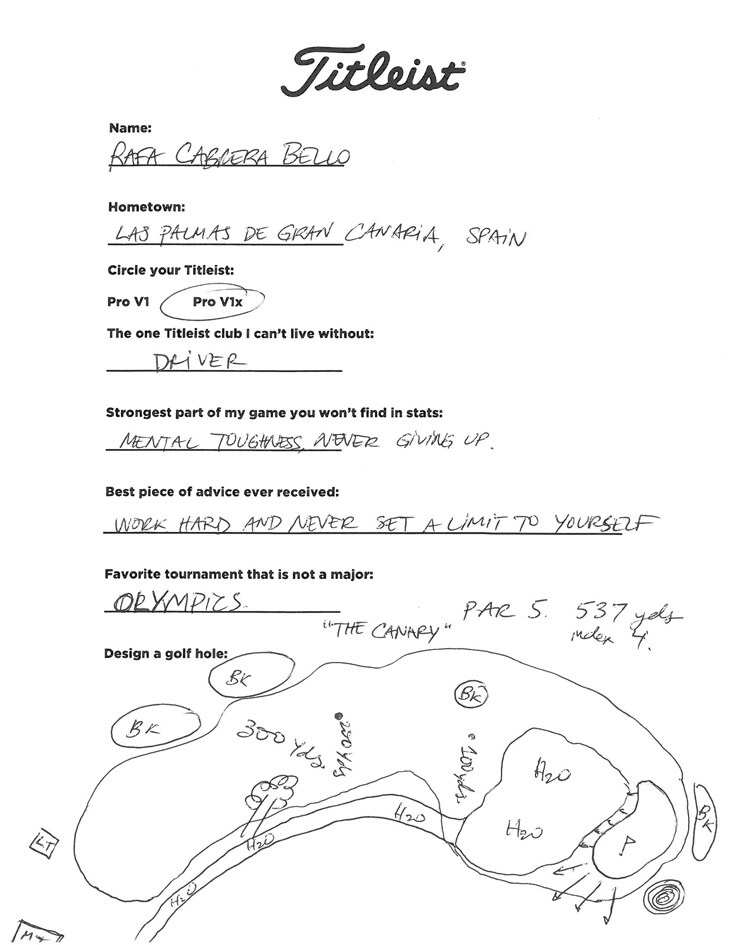 Titleist
Name:
RAFA CABRERA BELLO
Hometown:
LAS PALMAS DE GRAN CANARIA, SPAIN
Circle your Titleist:
Pro V1 Pro V1x
The one Titleist club I can't live without:
DRIVER
Strongest part of my game you won't find in stats:
MENTAL TOUGHNESS, NEVER GIVING UP.
Best piece of advice ever received:
WORK HARD AND NEVER SET A LIMIT TO YOURSELF
Favorite tournament that is not a major:
OLYMPICS.
"THE CANARY" PAR 5. 537 yds
index 4.
Design a golf hole:
BK
BK
BK
300 yds
200 yds
100 yds
H2O
H2O
H2O
H2O
H2O
P
BK
LT